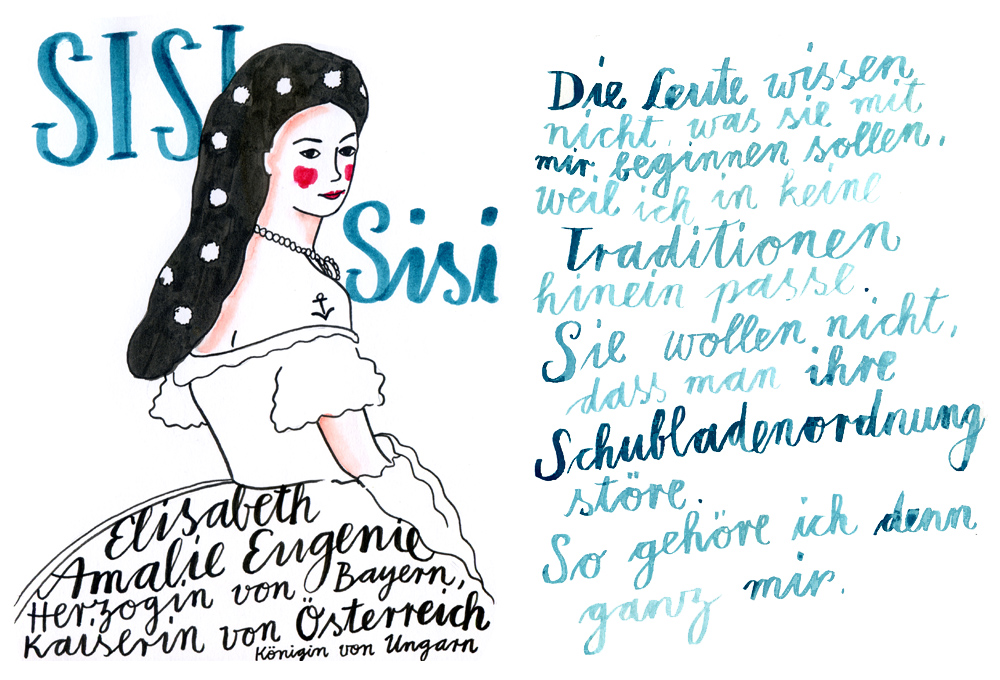 SISI
Sisi
Elisabeth
Amalie Eugenie
Herzogin von Bayern,
Kaiserin von Österreich
Königin von Ungarn
Die Leute wissen
nicht, was sie mit
mir beginnen sollen,
weil ich in keine
Traditionen
hinein passe.
Sie wollen nicht,
dass man ihre
Schubladenordnung
störe.
So gehöre ich denn
ganz mir.